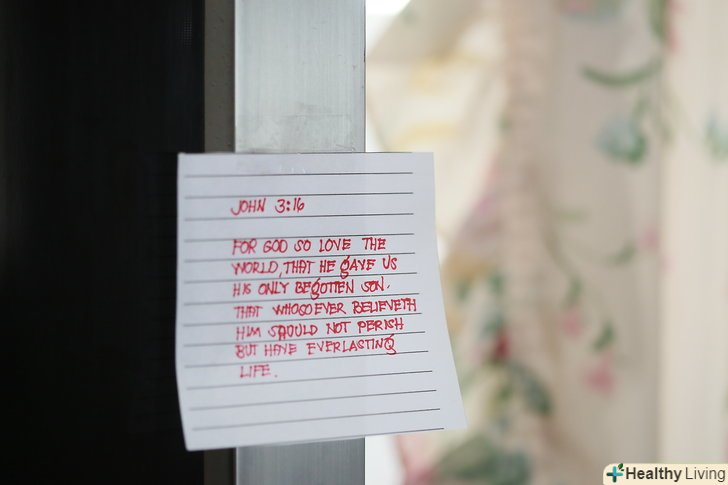 JOHN 3:16
FOR GOD SO LOVE THE
WORLD, THAT HE GAVE US
HIS ONLY BEGOTTEN SON.
THAT WHOSOEVER BELIEVETH
HIM SHOULD NOT PERISH
BUT HAVE EVERLASTING
LIFE.
Healthy Living